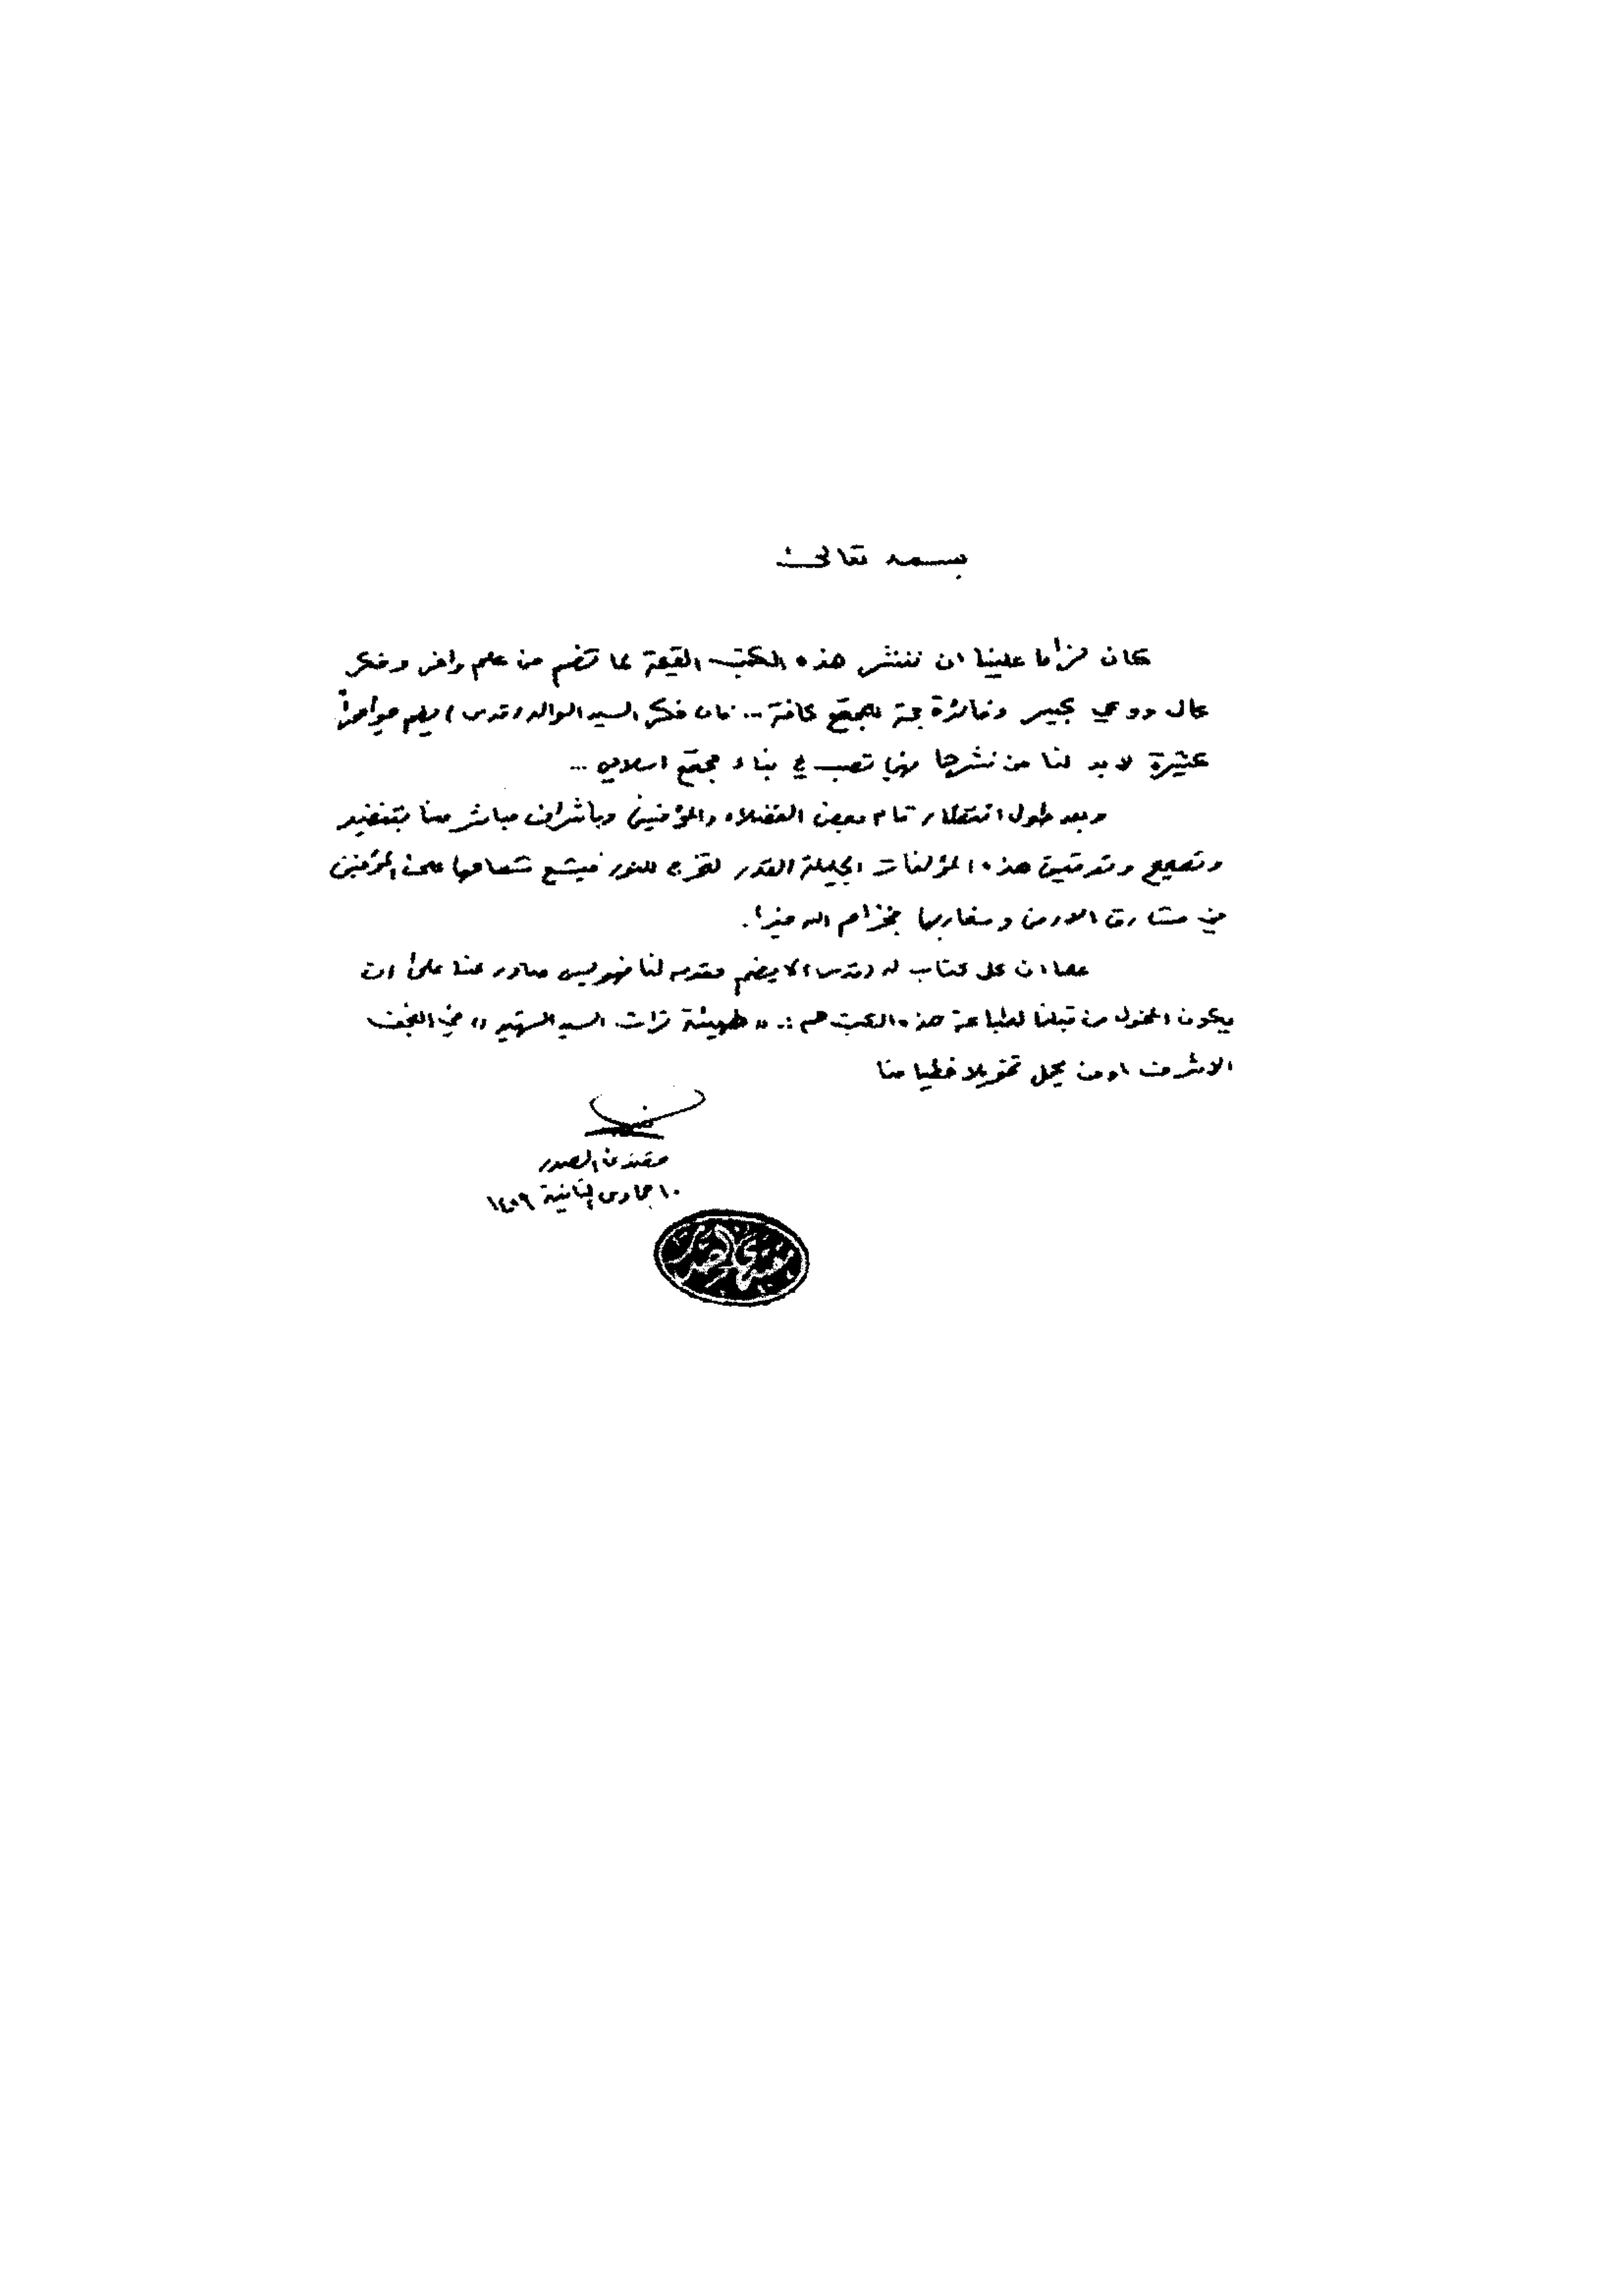 بسمه تعالى
كان لزاما علينا ان ننشر هذه الكتب القيمة لما تضم من علم وافر وفكر
عال ووعي كبير وفائدة جمة للمجتمع كافة ... فان فكر السيد الوالد (قدس) يضم مواضيعاً
كثيرة لا بد لنا من نشرها فهي تصب في بناء مجتمع اسلامي ...
وبعد طول انتظار قام بعض الفضلاء والمؤمنين وباشراف مباشر منا بتنضيد
وتصحيح وتدقيق هذه المؤلفات الجليلة القدر لتخرج للنور فيشع شعاعها على المؤمنين
في مشارق الارض ومغاربها فجزاهم الله خيرا.
علما ان كل كتاب له (قدس) لا يضم مقدمه لنا فهو ليس صادر عنا على ان
يكون المخول من قبلنا لطباعة هذه الكتب هم :. «هيئة تراث السيد الشهيد» في النجف
الاشرف او من يحمل تخويلا خطيا منا
مقتدى الصدر
١٠ جمادى الثانية ١٤٢٩
مقتدى الصدر